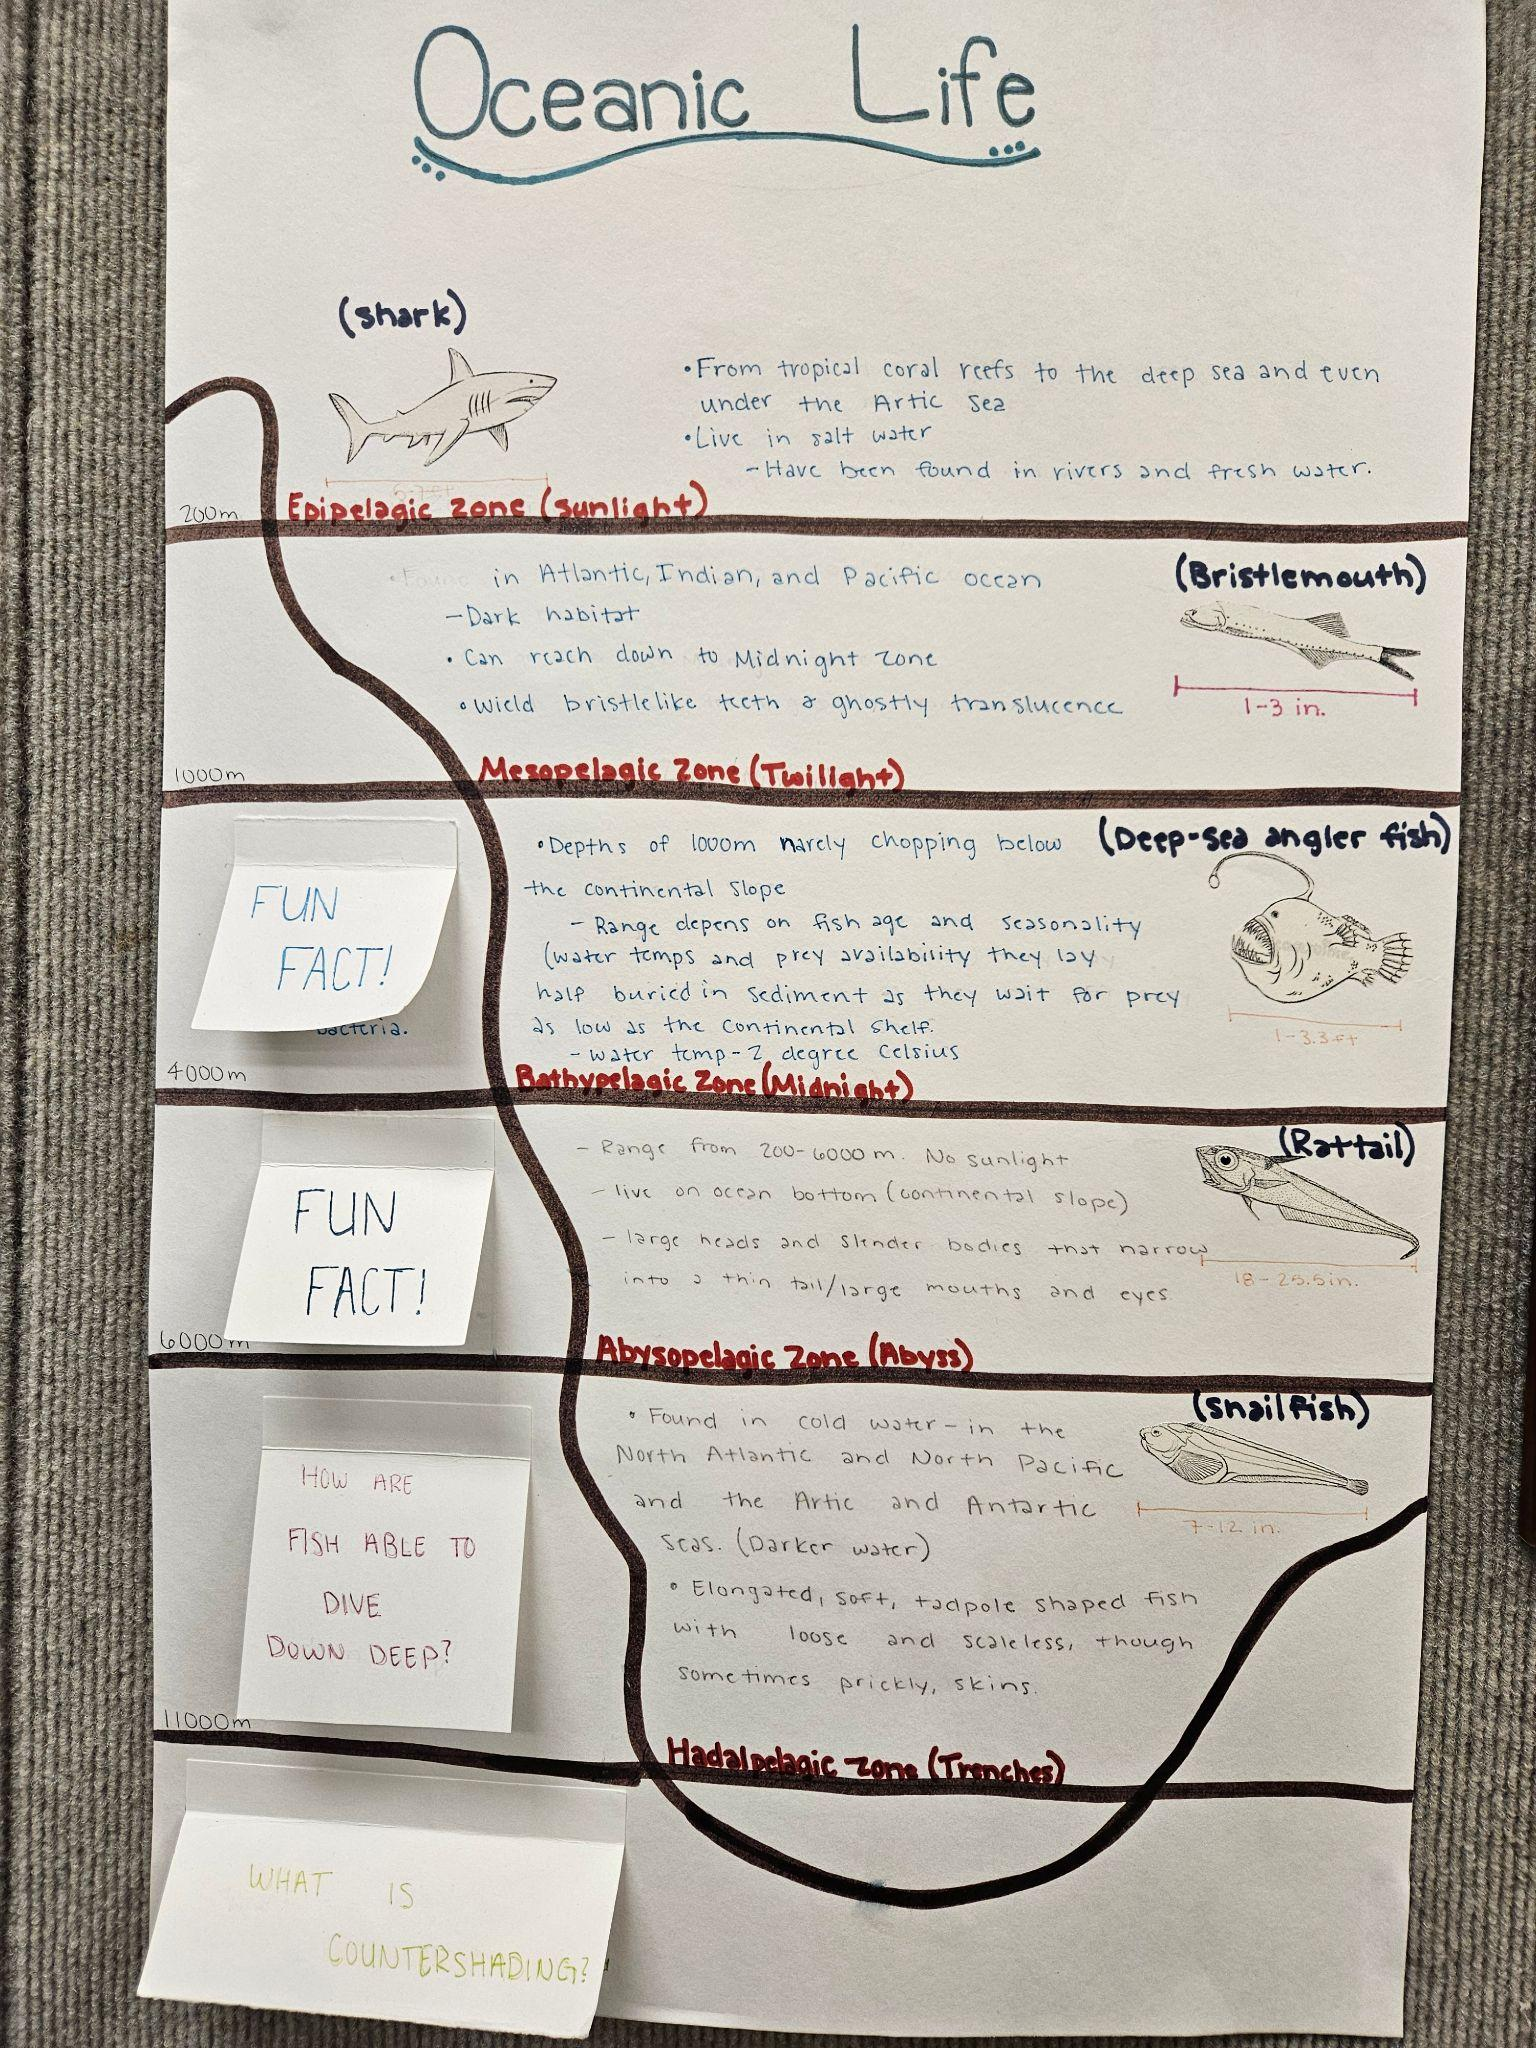 Oceanic Life
(shark)
•From tropical coral reefs to the deep sea and even
under the Artic Sea
•Live in salt water
-Have been found in rivers and fresh water.
200m
Epipelagic Zone (sunlight)
•Found in Atlantic, Indian, and Pacific ocean
-Dark habitat
•Can reach down to Midnight Zone
•Wield bristlelike teeth & ghostly translucence
(Bristlemouth)
1-3 in.
1000m
Mesopelagic Zone (Twilight)
•Depths of 1000m rarely chopping below
the continental slope
- Range depens on fish age and seasonality
(water temps and prey availability they lay
half buried in sediment as they wait for prey
as low as the continental shelf.
- water temp-2 degree Celsius
(Deep-sea angler fish)
1-3.3ft
FUN
FACT!
bacteria.
4000m
Bathypelagic Zone (Midnight)
- Range from 200-6000m. No sunlight
- live on ocean bottom (continental slope)
- large heads and slender bodies that narrow
into a thin tail/large mouths and eyes.
(Rattail)
18-25.5in.
FUN
FACT!
6000m
Abysopelagic Zone (Abyss)
• Found in cold water-in the
North Atlantic and North Pacific
and the Artic and Antartic
seas. (Darker water)
• Elongated, soft, tadpole shaped fish
with loose and scaleless, though
sometimes prickly, skins.
(snailfish)
7-12 in.
HOW ARE
FISH ABLE TO
DIVE
DOWN DEEP?
11000m
Hadalpelagic Zone (Trenches)
WHAT IS
COUNTERSHADING?